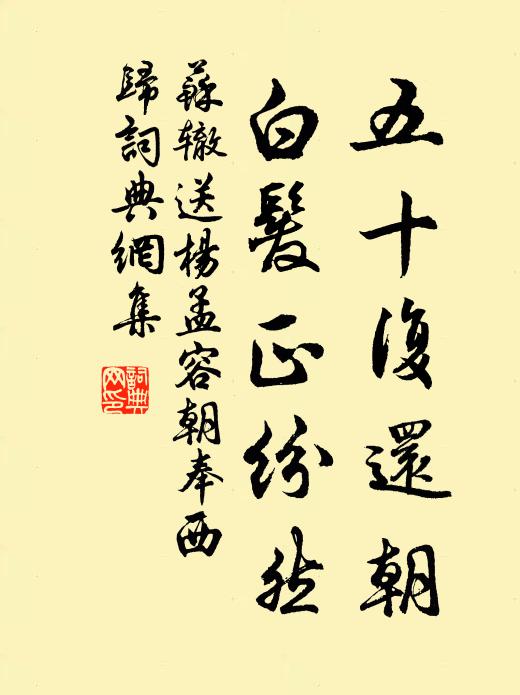 五十復還朝
白髮正紛然
蘇轍送楊孟容朝奉西
歸詞典網集
詞典
网印